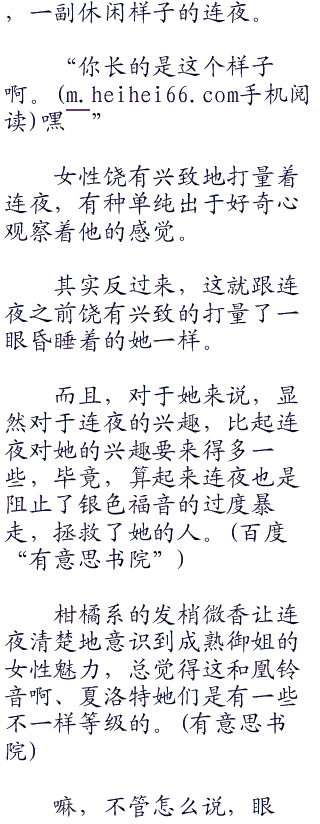 ，一副休闲样子的连夜。
“你长的是这个样子
啊。(m.heihei66.com手机阅
读)嘿——”
女性饶有兴致地打量着
连夜，有种单纯出于好奇心
观察着他的感觉。
其实反过来，这就跟连
夜之前饶有兴致的打量了一
眼昏睡着的她一样。
而且，对于她来说，显
然对于连夜的兴趣，比起连
夜对她的兴趣要来得多一
些，毕竟，算起来连夜也是
阻止了银色福音的过度暴
走，拯救了她的人。(百度
“有意思书院”)
柑橘系的发梢微香让连
夜清楚地意识到成熟御姐的
女性魅力，总觉得这和凰铃
音啊、夏洛特她们是有一些
不一样等级的。(有意思书
院)
嘛，不管怎么说，眼